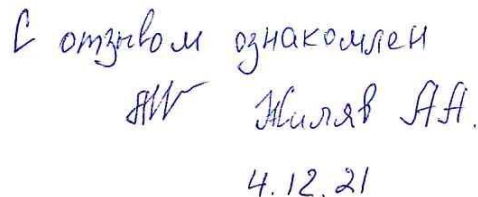 С отзывом ознакомлен
Жиляв А.А.
4.12.21